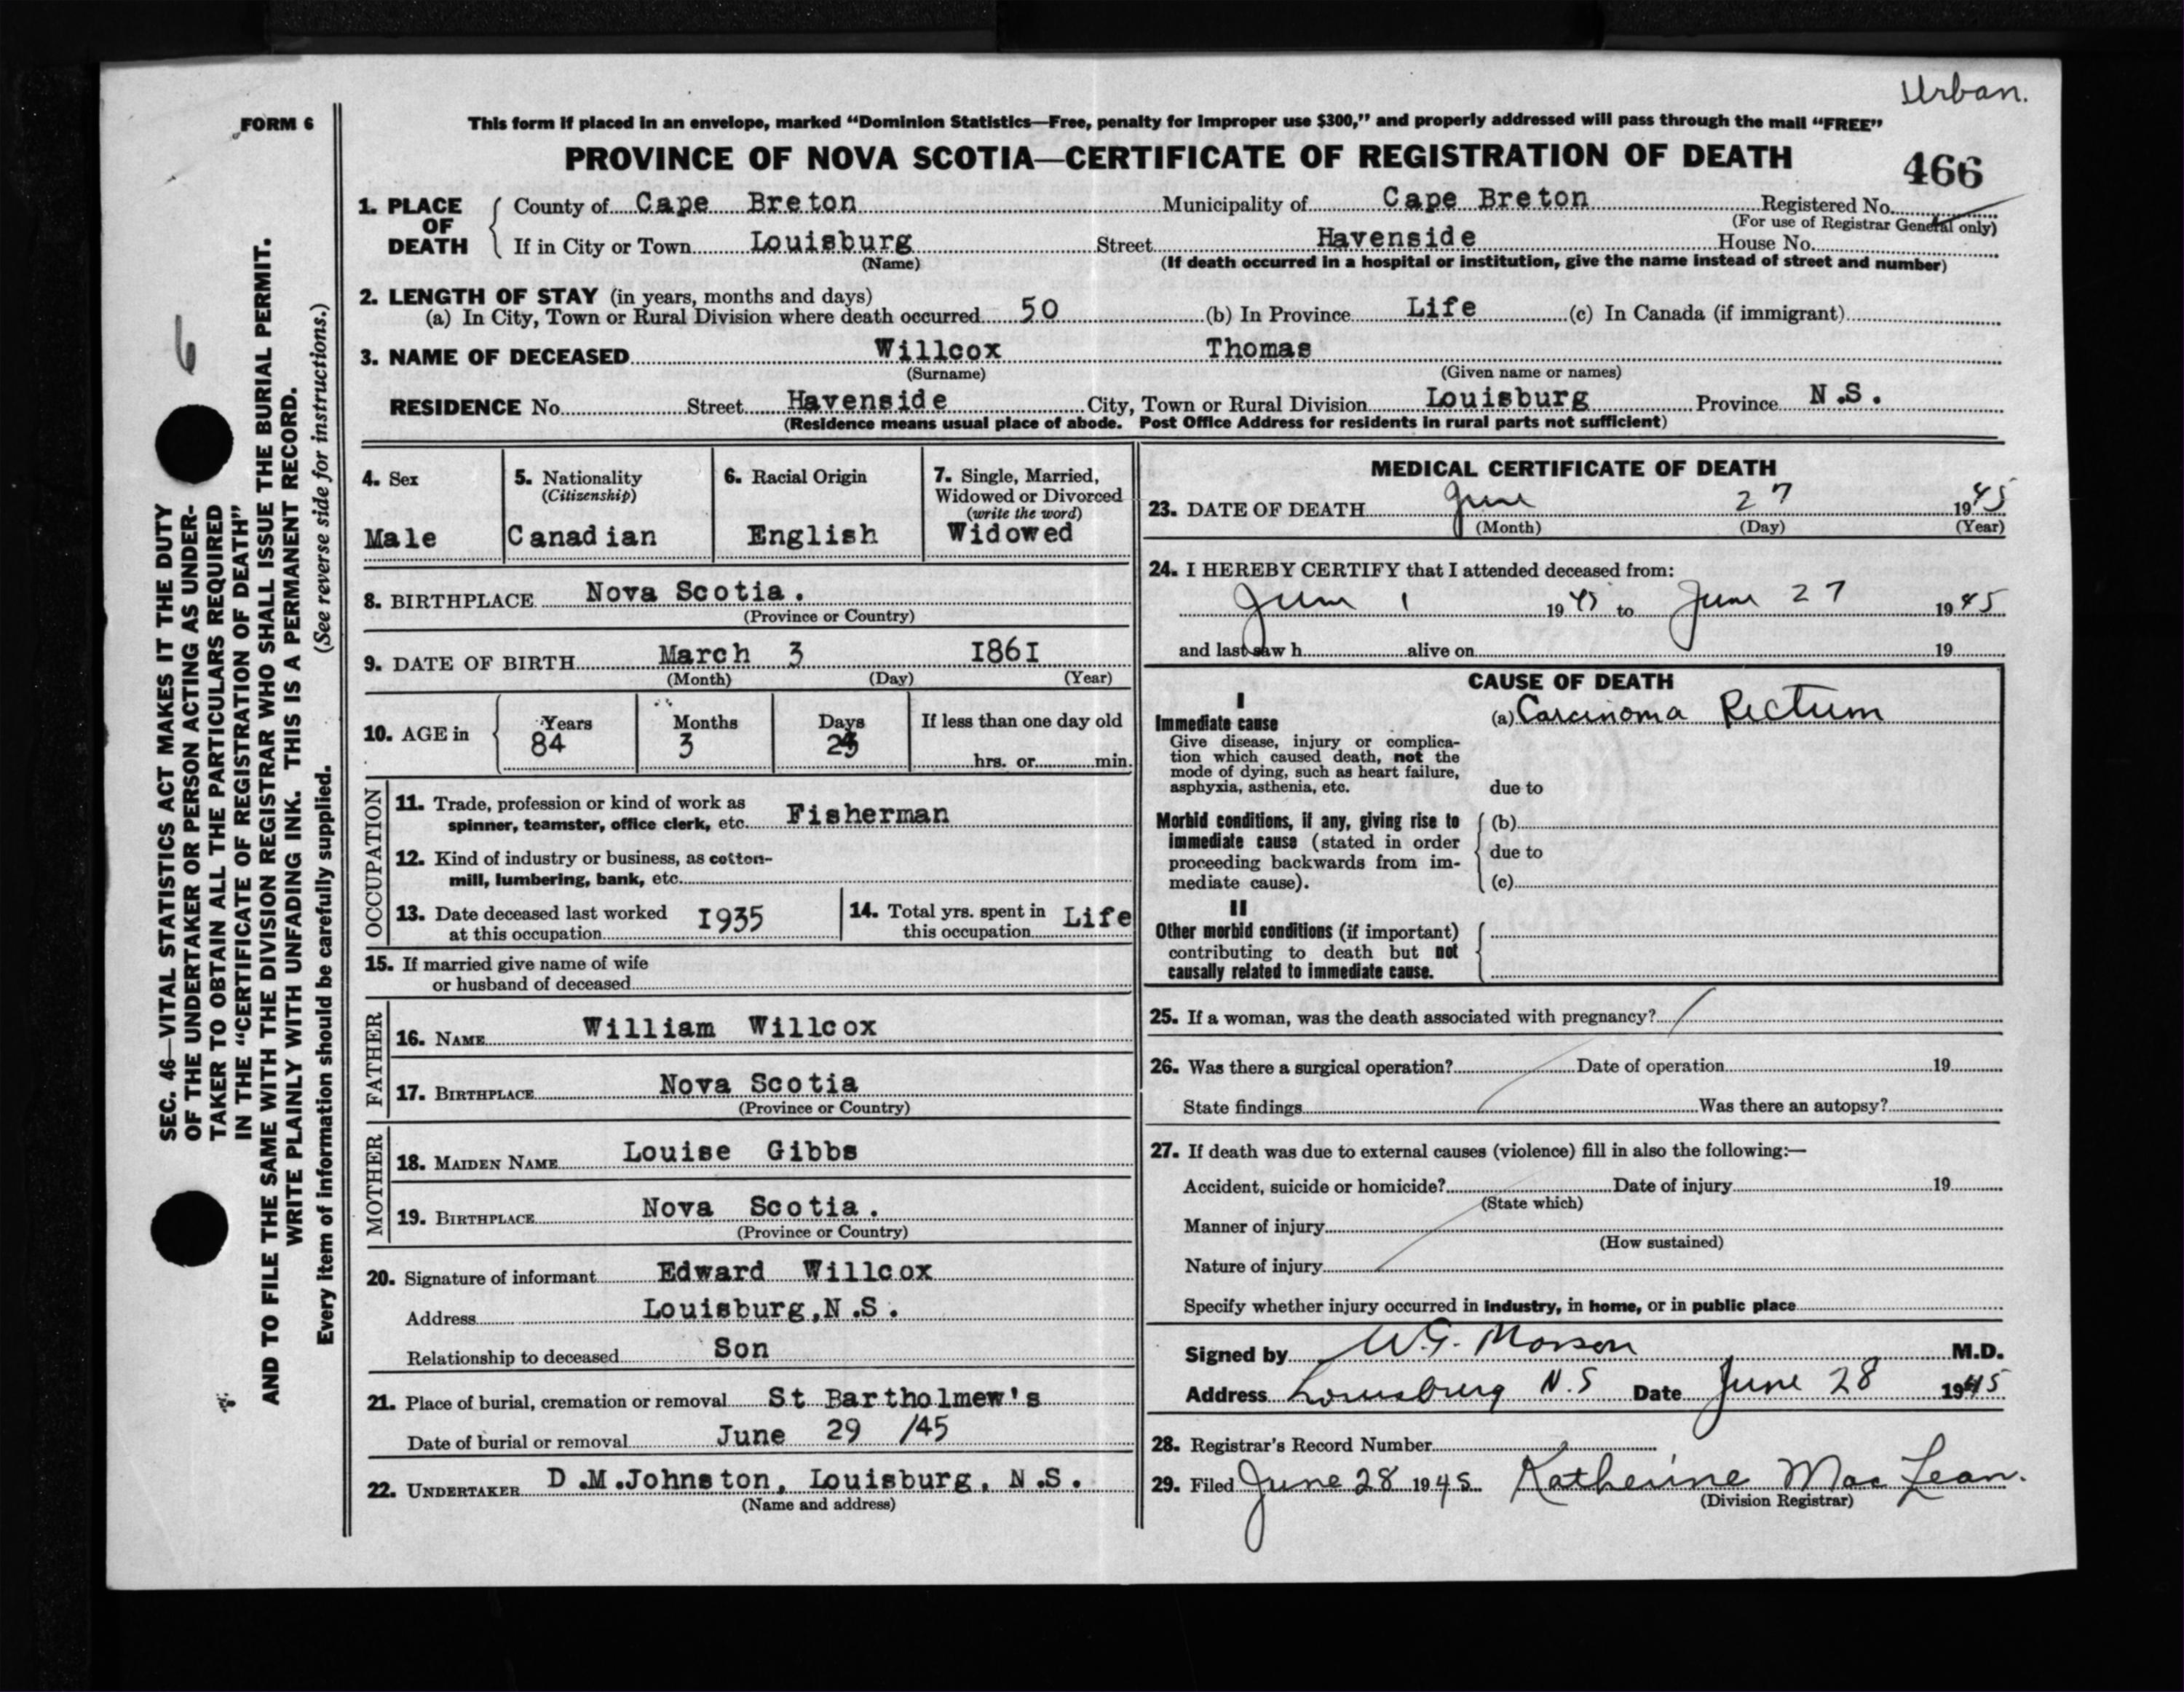 Urban.
FORM 6
This form if placed in an envelope, marked “Dominion Statistics—Free, penalty for improper use $300,” and properly addressed will pass through the mail “FREE”
PROVINCE OF NOVA SCOTIA—CERTIFICATE OF REGISTRATION OF DEATH
466
1. PLACE OF DEATH
County of Cape Breton Municipality of Cape Breton Registered No.
(For use of Registrar General only)
If in City or Town Louisburg Street Havenside House No.
(Name) (If death occurred in a hospital or institution, give the name instead of street and number)
2. LENGTH OF STAY (in years, months and days)
(a) In City, Town or Rural Division where death occurred 50 (b) In Province Life (c) In Canada (if immigrant)
3. NAME OF DECEASED Willcox Thomas
(Surname) (Given name or names)
RESIDENCE No. Street Havenside City, Town or Rural Division Louisburg Province N.S.
(Residence means usual place of abode. Post Office Address for residents in rural parts not sufficient)
4. Sex
Male
5. Nationality
(Citizenship)
Canadian
6. Racial Origin
English
7. Single, Married,
Widowed or Divorced
(write the word)
Widowed
8. BIRTHPLACE Nova Scotia.
(Province or Country)
9. DATE OF BIRTH March 3 1861
(Month) (Day) (Year)
10. AGE in
Years
84
Months
3
Days
If less than one day old
hrs. or min.
OCCUPATION
11. Trade, profession or kind of work as
spinner, teamster, office clerk, etc. Fisherman
12. Kind of industry or business, as cotton-
mill, lumbering, bank, etc.
13. Date deceased last worked
at this occupation 1935
14. Total yrs. spent in
this occupation Life
15. If married give name of wife
or husband of deceased
FATHER
16. NAME William Willcox
17. BIRTHPLACE Nova Scotia
(Province or Country)
MOTHER
18. MAIDEN NAME Louise Gibbs
19. BIRTHPLACE Nova Scotia.
(Province or Country)
20. Signature of informant Edward Willcox
Address Louisburg,N.S.
Relationship to deceased Son
21. Place of burial, cremation or removal St Bartholmew's
Date of burial or removal June 29 /45
22. UNDERTAKER D.M.Johnston, Louisburg, N.S.
(Name and address)
MEDICAL CERTIFICATE OF DEATH
23. DATE OF DEATH June 27 1945
(Month) (Day) (Year)
24. I HEREBY CERTIFY that I attended deceased from:
June 1 1945 to June 27 1945
and last saw h alive on 19
CAUSE OF DEATH
I
Immediate cause
Give disease, injury or complica-
tion which caused death, not the
mode of dying, such as heart failure,
asphyxia, asthenia, etc.
(a) Carcinoma Rectum
due to
Morbid conditions, if any, giving rise to
immediate cause (stated in order
proceeding backwards from im-
mediate cause).
(b)
due to
(c)
II
Other morbid conditions (if important)
contributing to death but not
causally related to immediate cause.
25. If a woman, was the death associated with pregnancy?
26. Was there a surgical operation? Date of operation 19
State findings Was there an autopsy?
27. If death was due to external causes (violence) fill in also the following:—
Accident, suicide or homicide? Date of injury 19
(State which)
Manner of injury
(How sustained)
Nature of injury
Specify whether injury occurred in industry, in home, or in public place
Signed by W.G. Morson M.D.
Address Louisburg N.S Date June 28 1945
28. Registrar's Record Number
29. Filed June 28 1945 Katherine MacLean.
(Division Registrar)
6
SEC. 46—VITAL STATISTICS ACT MAKES IT THE DUTY
OF THE UNDERTAKER OR PERSON ACTING AS UNDER-
TAKER TO OBTAIN ALL THE PARTICULARS REQUIRED
IN THE “CERTIFICATE OF REGISTRATION OF DEATH”
AND TO FILE THE SAME WITH THE DIVISION REGISTRAR WHO SHALL ISSUE THE BURIAL PERMIT.
WRITE PLAINLY WITH UNFADING INK. THIS IS A PERMANENT RECORD.
Every item of information should be carefully supplied. (See reverse side for instructions.)